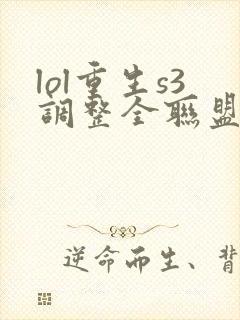 lol重生s3
調整全聯盟
逆命而生、背